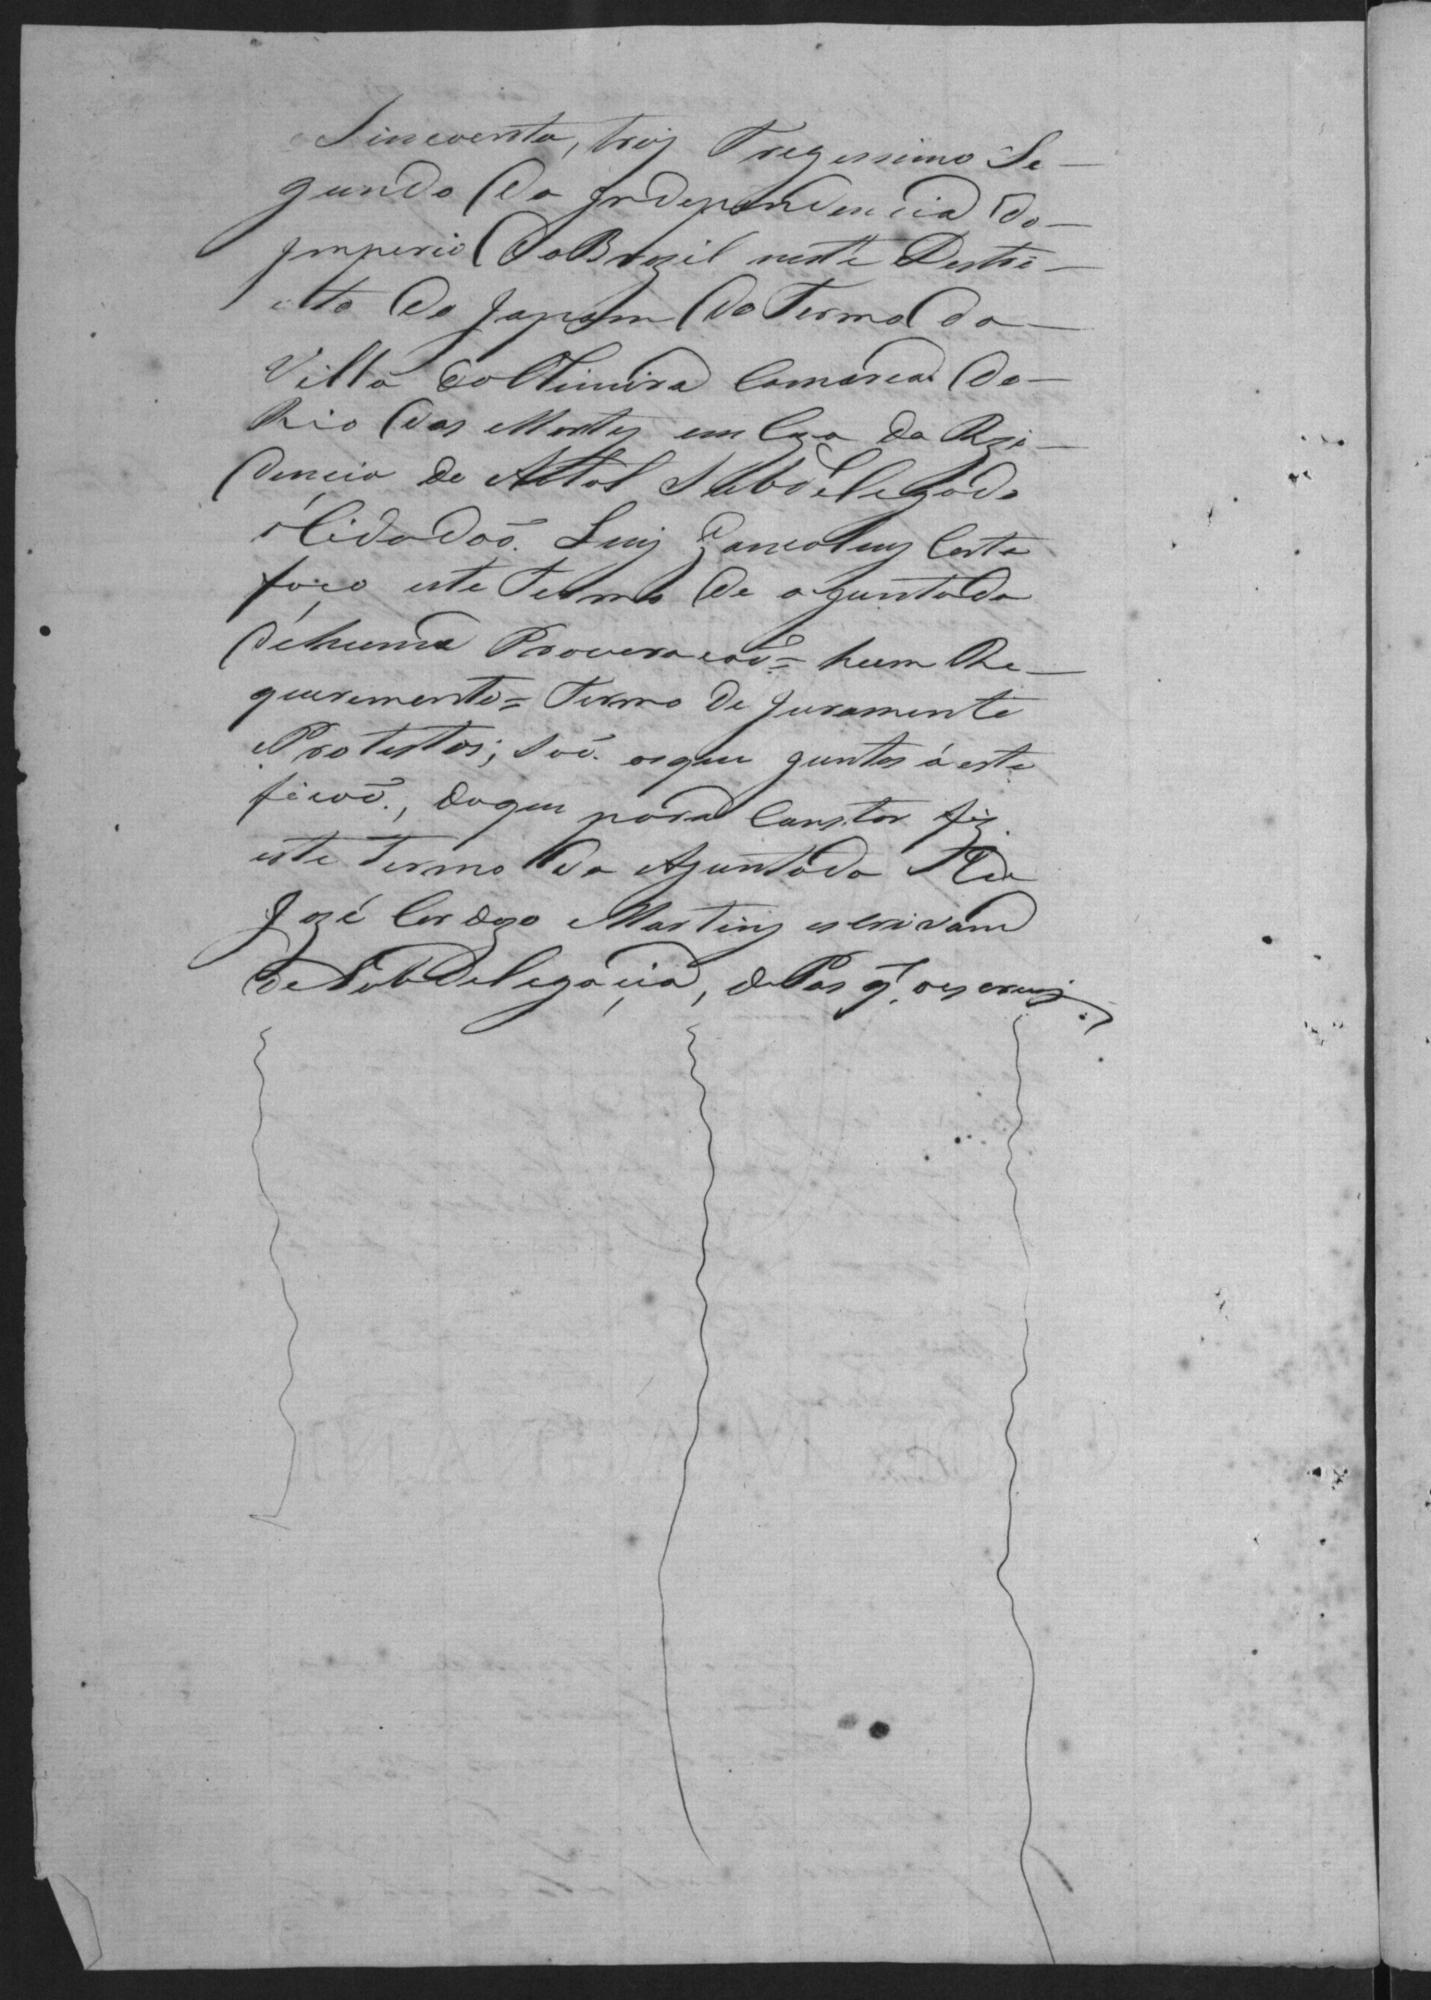 Sincoenta, tres Tregessimo Se-
gundo da Independencia do
Imperio do Brazil neste Destri-
cto do Japam do Termo da
Villa do Oliveira Comarca do
Rio das Mortes em Caza da Rezi-
dencia do Atal Subdelegado
Cidadaõ. Luiz Gonçalvez
faço este Termo de ajuntada
de huma Procuraçaõ = hum Re-
querimento = Termo de Juramento
Protestos; saõ. os que juntos á este
ficaõ., do que para Constar fiz
este Termo da Ajuntada Eu
José Cardozo Martins escrivam
de Subdelegacia, de Pas q. o escrevy.